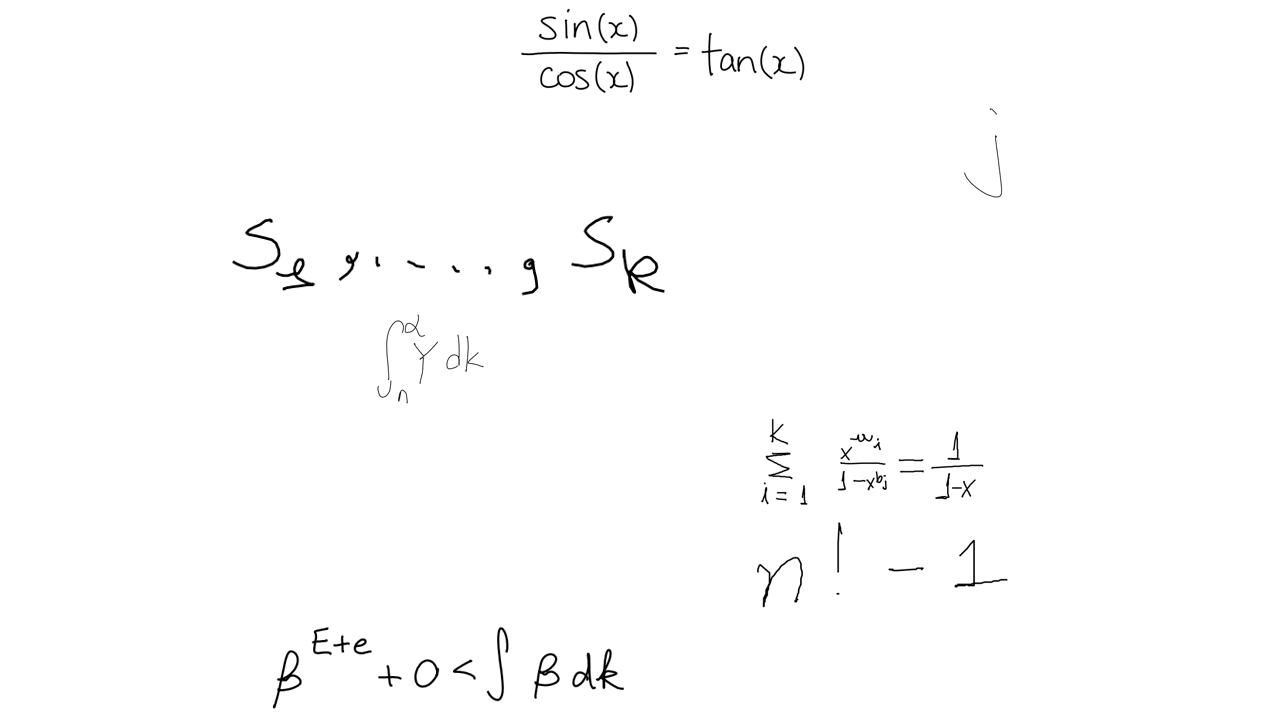 \frac{\sin(x)}{\cos(x)} = \tan(x)
j
S_1, ....., S_k
\int_n^\alpha Y dk
\sum_{i=1}^{k} \frac{x^{w_i}}{1-x^{b_i}} = \frac{1}{1-x}
n! - 1
\beta^{E+e} + 0 < \int \beta dk